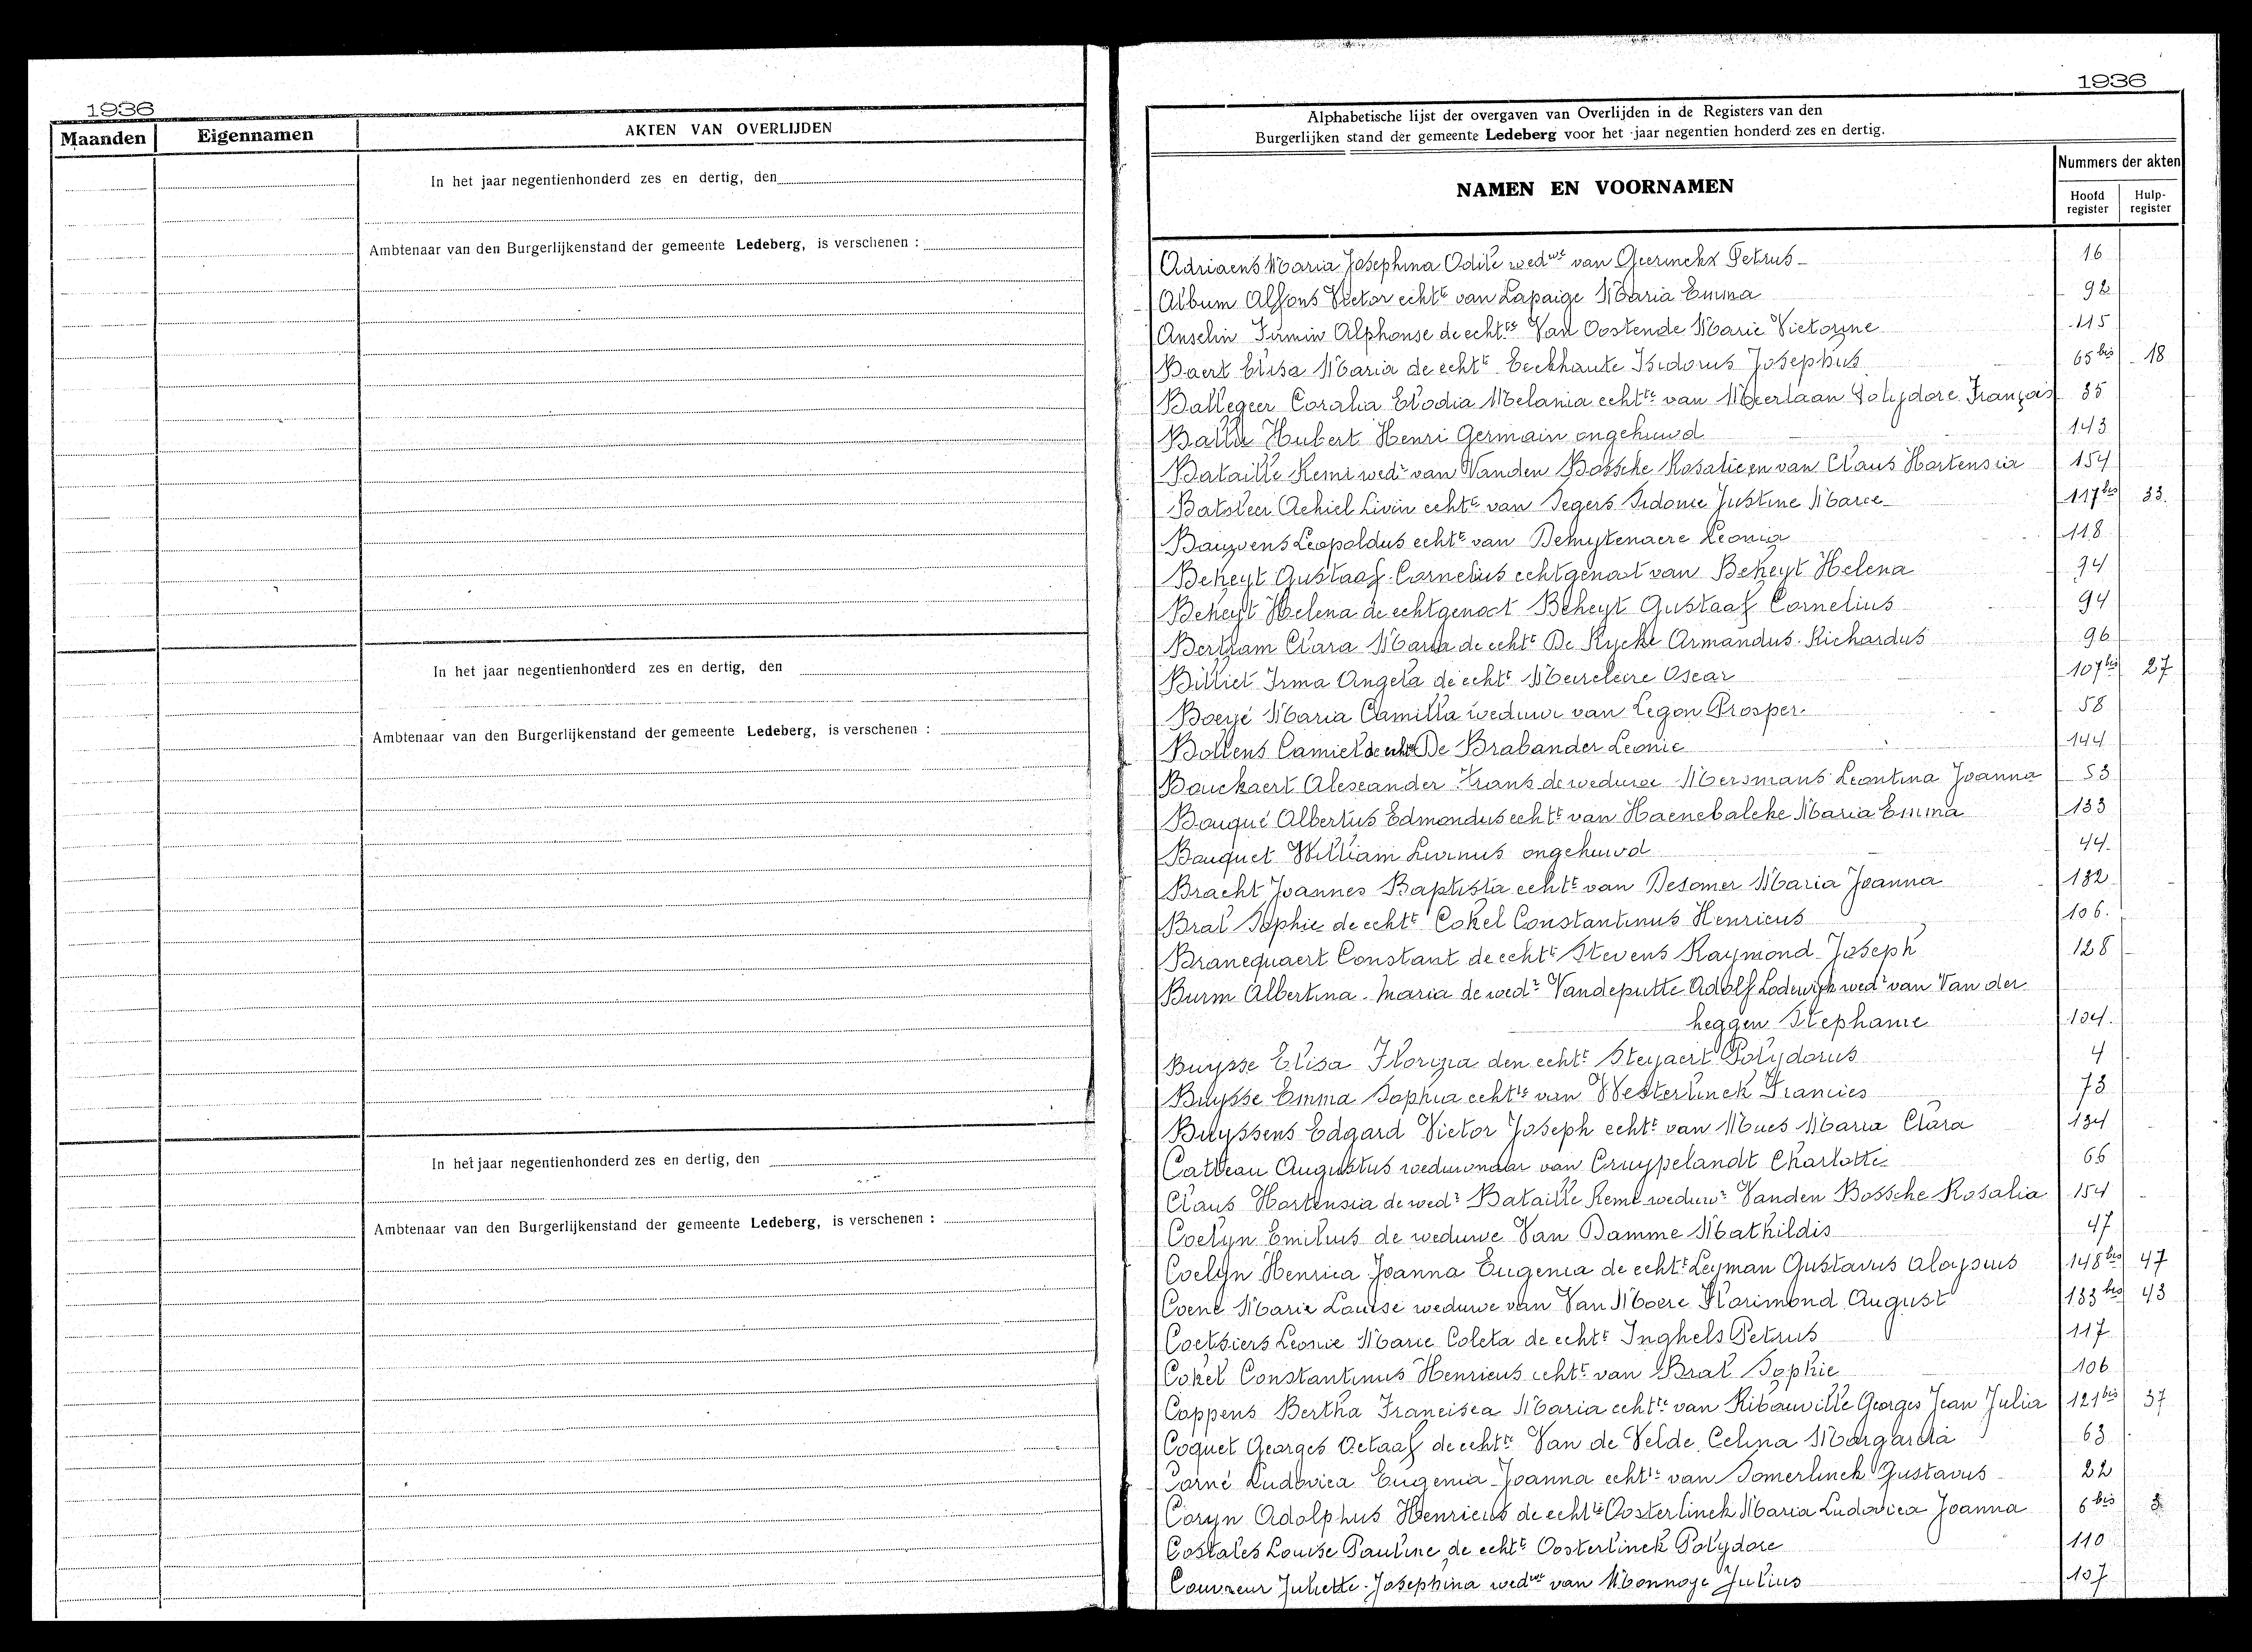 1936
Maanden
Eigennamen
AKTEN VAN OVERLIJDEN
In het jaar negentienhonderd zes en dertig, den
Ambtenaar van den Burgerlijkenstand der gemeente Ledeberg, is verschenen :
In het jaar negentienhonderd zes en dertig, den
Ambtenaar van den Burgerlijkenstand der gemeente Ledeberg, is verschenen :
In het jaar negentienhonderd zes en dertig, den
Ambtenaar van den Burgerlijkenstand der gemeente Ledeberg, is verschenen :
1936
Alphabetische lijst der overgaven van Overlijden in de Registers van den
Burgerlijken stand der gemeente Ledeberg voor het jaar negentien honderd zes en dertig.
NAMEN EN VOORNAMEN
Nummers der akten
Hoofd register
Hulp-register
Adriaens Maria Josephina Odile wedwe van Geerinckx Petrus 16
Album Alfons Victor echte van Lapaige Maria Emma 92
Anselin Firmin Alphonse de echtte Van Oostende Marie Victorine 115
Baert Elisa Maria de echte Eeckhaute Isidorus Josephus 65bis 18
Ballegeer Coralia Elodia Melania echtte van Meerlaan Polydore François 35
Ballu Hubert Henri Germain ongehuwd 143
Bataille Remi wedr van Vanden Bossche Rosalie en van Claus Hortensia 154
Batsleer Achiel Livin echte van Segers Sidonie Justine Marie 117bis 33
Bauwens Leopoldus echte van Demuytenaere Leonia 118
Beheyt Gustaaf Cornelius echtgenoot van Beheyt Helena 94
Beheyt Helena de echtgenoot Beheyt Gustaaf Cornelius 94
Bertram Clara Maria de echte De Rycke Armandus Richardus 96
Billiet Irma Angela de echte Meireleire Oscar 107bis 27
Boeyé Maria Camilla weduwe van Legon Prosper 58
Bollens Camiel de echte De Brabander Leonie 144
Bouckaert Alexander Frans de weduwe Mersmans Leontina Joanna 53
Bouqué Albertus Edmondus echte van Haenebalcke Maria Emma 133
Bouquet William Livinus ongehuwd 44
Bracht Joannes Baptista echte van Desomer Maria Joanna 132
Bral Sophie de echte Cokel Constantinus Henricus 106
Branequaert Constant de echte Stevens Raymond Joseph 128
Burm Albertina Maria de wedr Vandeputte Adolf Lodewijk wedr van Van der
heggen Stephanie 104
Buysse Elisa Florizia den echte Steyaert Polydorus 4
Buysse Emma Sophia echtte van Westerlinck Francies 73
Buyssens Edgard Victor Joseph echte van Mues Maria Clara 134
Catteau Augustus weduwnaar van Cruypelandt Charlotte 66
Claus Hortensia de wedr Bataille Remi weduwr Vanden Bossche Rosalia 154
Coelyn Emilius de weduwe Van Damme Mathildis 47
Coelyn Henrica Joanna Eugenia de echte Leyman Gustavus Aloysius 148bis 47
Coene Marie Louise weduwe van Van Moere Florimond August 133bis 43
Coetsiers Leonie Marie Coleta de echte Inghels Petrus 117
Cokel Constantinus Henricus echte van Bral Sophie 106
Coppens Bertha Francisca Maria echtte van Ribouville Georges Jean Julia 121bis 37
Coquet Georges Octaaf de echte Van de Velde Celina Margarita 63
Corné Ludovica Eugenia Joanna echtte van Somerlinck Gustavus 22
Coryn Adolphus Henricus de echtte Oosterlinck Maria Ludovica Joanna 6bis 3
Costales Louise Pauline de echte Oosterlinck Polydore 110
Couvreur Juliette Josephina wedwe van Monnoye Julius 107